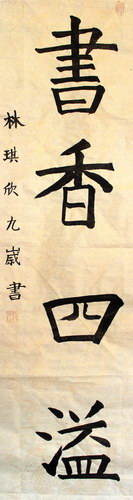 書香四溢
林琪欣九歲書